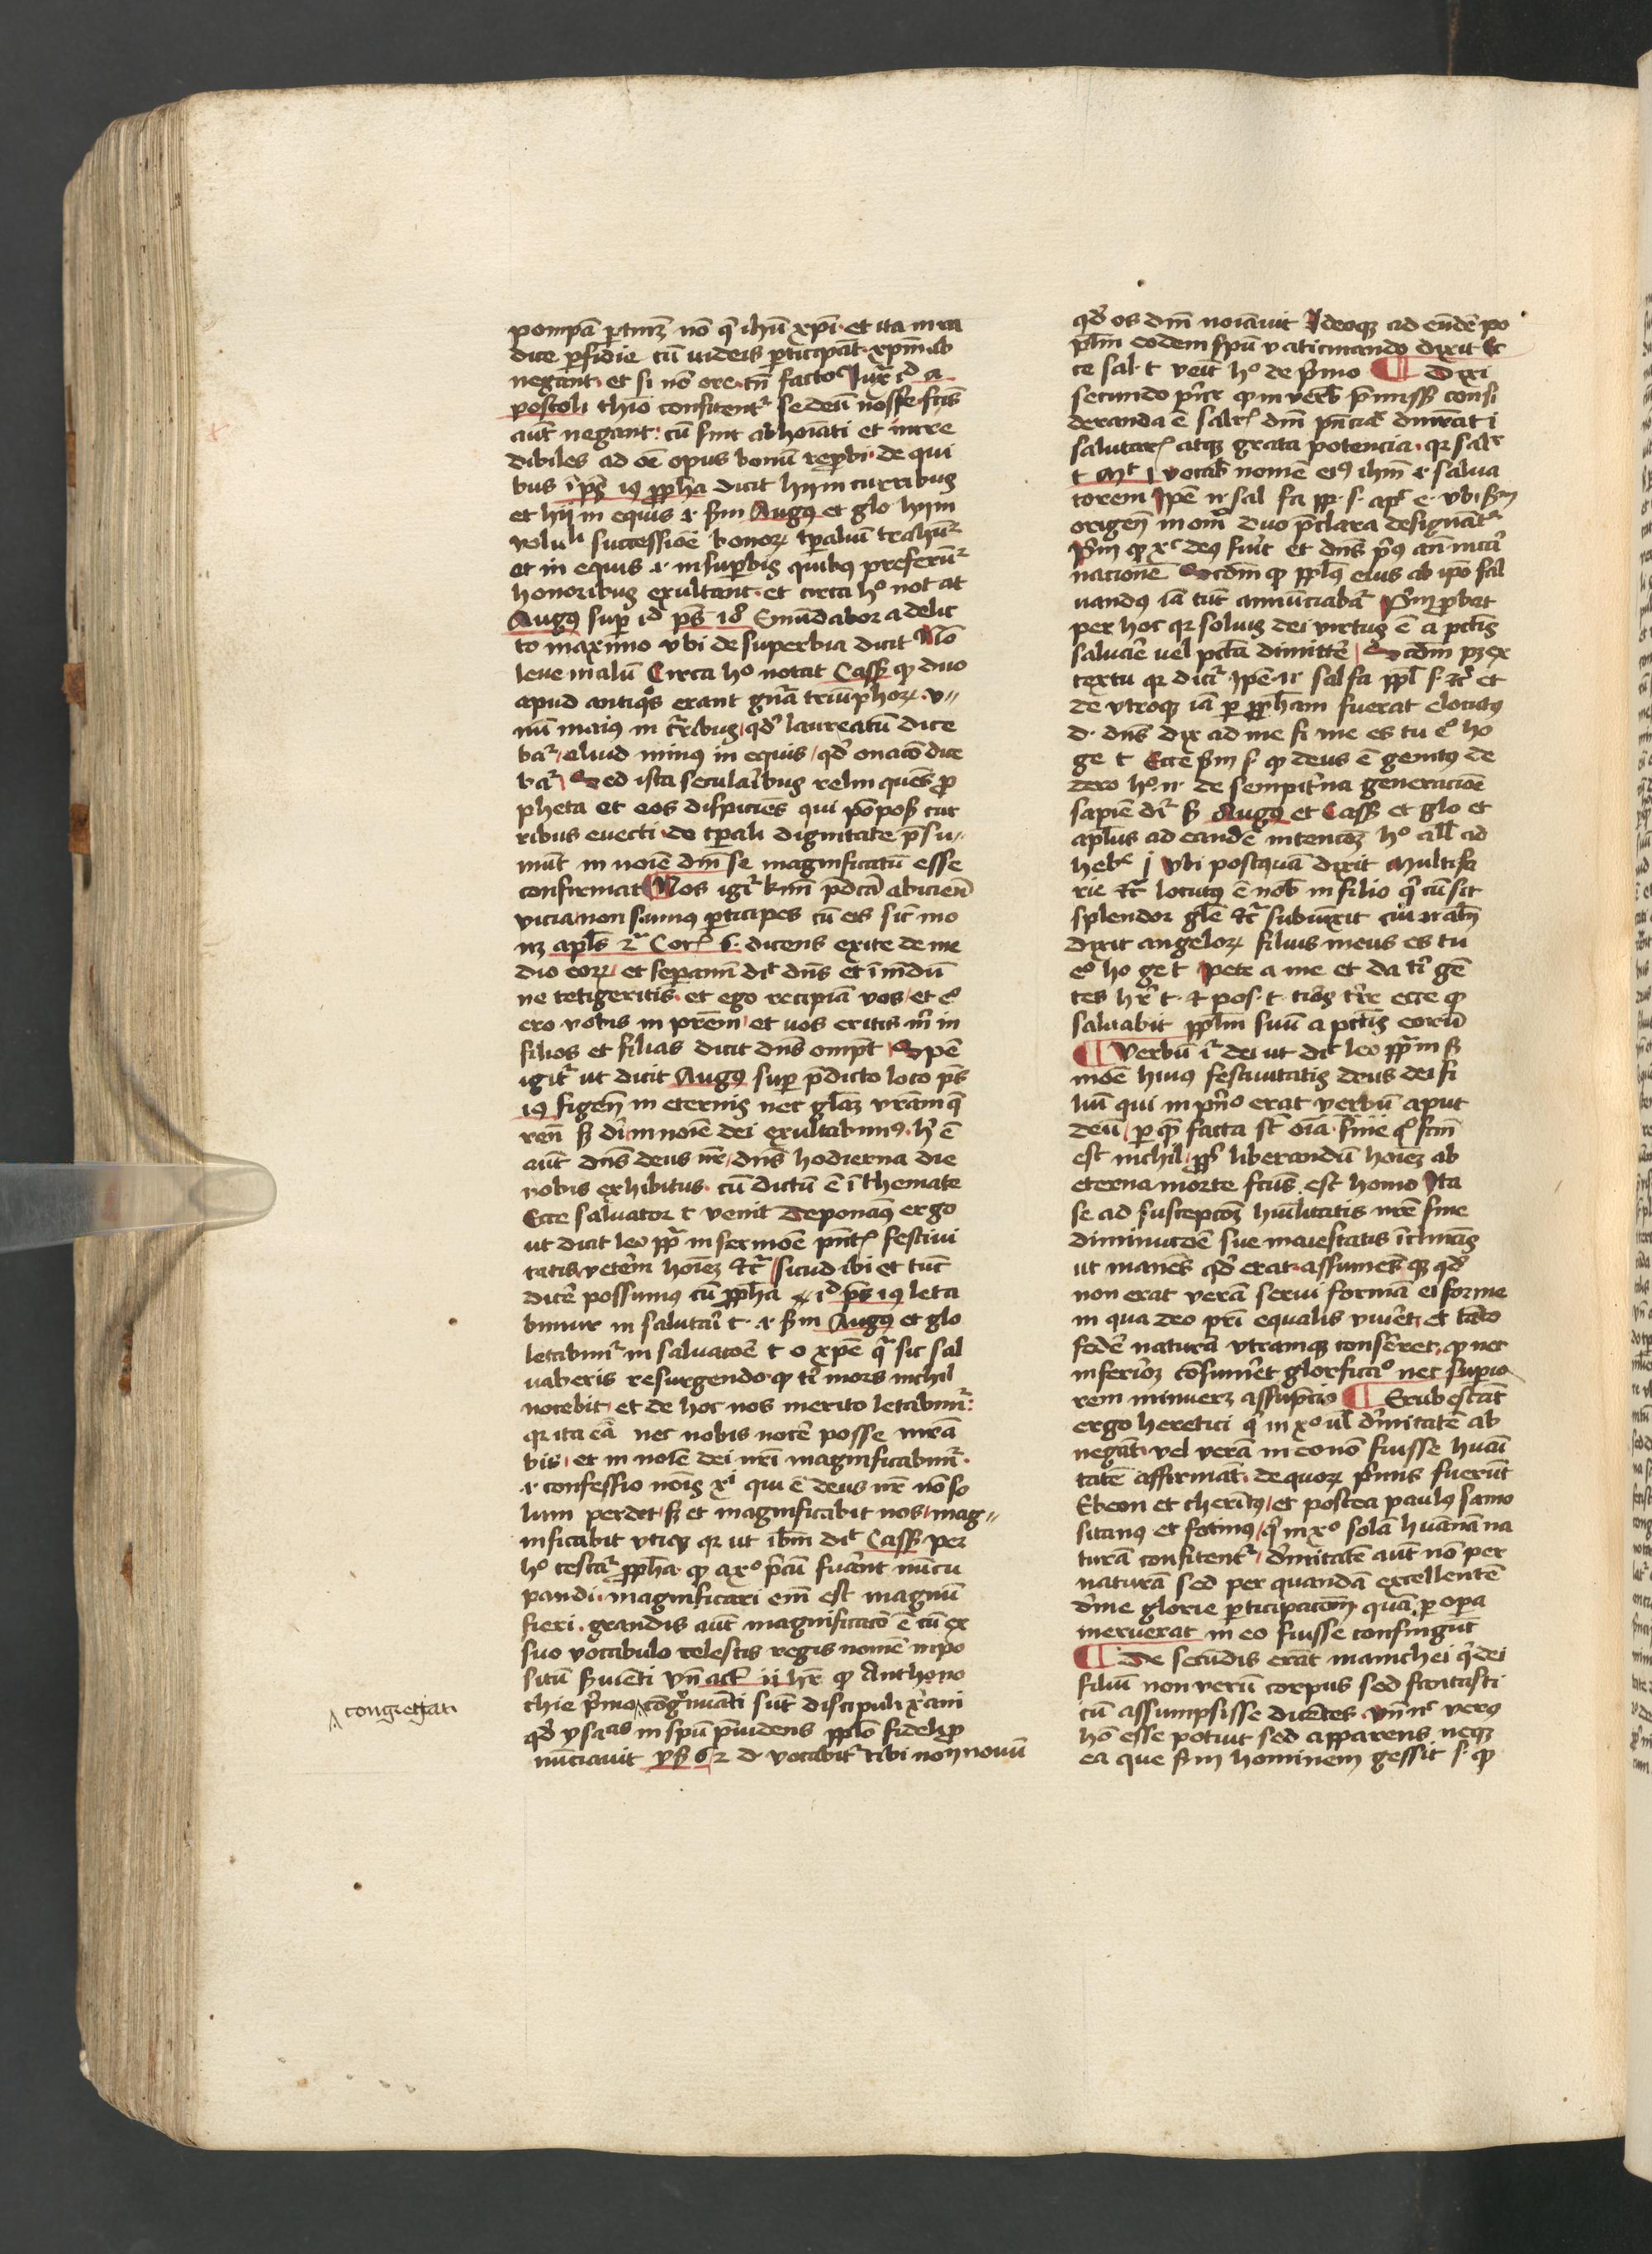 pompā ptinꝫ nō q̄ ihū xpī et ita in ra
dice pfidie cū iudeis pticipāt xpm ab
negant et si nō ore tn̄ facto Iux̄ id a
postoli thīo confitentᷓ se deū nosse fctīs
aūt negant cū sint abhoīati et incre
dibiles ad oē opus bonū reprobi de qui
bus ī ps̄ 19 ꝓpha dicit hij in curribus
et hij in equis .i. sm Augꝰ et glo hij in
volu succession̄e bonoꝝ tp̄aliū trahūtᷓ
et in equis .i. in supbis quibꝰ preferūtᷓ
honoribus exultant et circa hͦ notat
Augꝰ sup id ps̄ 18 Emūdabor a delic
to maximo vbi de superbia dicit Nō
leue malū Circa hͦ notat Cass̄ qꝫ duo
apud antiqͦs erant gn̄a triūphoꝝ v
nū maiꝰ in curribus qd̄ laureatū dice
baᷓ aliud minꝰ in equis qd̄ ouacō dice
baᷓ Sed ista secularibus relinquēs ꝓ
pheta et eos dispiciēs qui pōpos̄ cur
ribus euecti de tp̄ali dignitate psu
mūt in noīe dm̄ se magnificatū esse
confirmat Nos igiᷓ km̄ pdcā abicien̄
vicia non simus pticipes cū eis sic mo
nꝫ apl̄s 2ᵃ Corᷓ 6 dicens exite de me
dio eoꝝ et sepamī dīc dn̄s et īmūdū
ne tetigeritis et ego recipiā vos et eͦ
ero vobis in prēm et uos eritis m̄ in
filios et filias dicit dn̄s omp̄t Spē
igiᷓ ut dicit Augꝰ sup pdicto loco ps̄
19 figen̄ in eternis nec gl̄aꝫ vr̄am q̄
ren̄ s̄ dī in noīe dei exultabimꝰ h̄ ē
aūt dn̄s deus nr̄ dn̄s hodierna die
nobis exhibitus cū dictū ē ī themate
Ecce saluator t venit Deponamꝰ ergo
ut dicit leo pp̄ in sermōe pn̄tᷓ festiui
tatis veterē hoīeꝫ &c̄ sicud ibi et tūc
dicē possumꝰ cū ꝓpha id ps̄ 19 leta
bimur in salutarī t .i. sm Augꝰ et glo
letabimᷓ in saluatōe t o xpē qᷓ sic sal
uaberis resurgendo qꝫ tī mors nichil
nocebit et de hoc nos merito letabimᷓ
qr ita eā nec nobis nocē posse mrā
bis et in noīe dei nrī magnificabimᷓ
.i. confessio noīs xͥ qui ē deus nr̄ nō so
lum perdet s̄ et magnificabit nos mag
nificabit vtiqꝫ qr ut ibm̄ dīc Cass̄ per
hͦ testaᷓ ꝓpha qꝫ a xͦ pcū fuerāt nūcu
pandi magnificari em̄ est magnū
fieri grandis aūt magnificacō ē cū ex
suo vocabulo celestis regis nomē inpo
situ suienti vn̄ act 11 hr̄ qꝫ Anthyo
chie pmo cōgᷓnuāti sūt discipuli xᷓani
qd̄ ysaᵃˢ in spū puidens pplō fideli ꝓ
nūciauit ys̄ 62 d vocabiᷓ tibi nom̄ nouū
congregati
qd̄ os dm̄ noīauit Ideoqꝫ ad eūdē po
pl̄m eodem spū vaticinando dixit Ec
ce sal t venit hͦ de pmo ¶ Dixi
secundo pnͨ qꝫ in verb̄ pmiss̄ consi
deranda ē salᷓ dm̄ pn̄cia dm̄rat i
salutarᷓ atqꝫ grata potencia qr salᷓ
t Mᵗ 1 vocab̄ nomē eiꝰ ihm̄ .i. salua
torem Ipē n̄ sal fa pp̄ s apᷓ e vbi sm
origen̄ in om̄ duo pclara designātᷓ
Pm qꝫ xͨ deꝰ fuīt et dn̄s pꝰ an̄ incar
nacionē Scdm qꝫ pplꝰ eius ab ipō sal
uandꝰ iā tūc annūciabaᷓ Pm pbat
per hoc qr soluis dei virtus ē a pctīs
saluāre uel pctā dimittē Scdm pꝫ ex
textu qr diciᷓ Ipē n̄ sal fa ppl̄ s &c̄ et
de vtroqꝫ iā p ꝓpham fuerat elocutꝰ
d dn̄s dix ad me fi me es tu eͦ ho
ge t Ecce sm s qꝫ deus ē genitꝰ de
deo hͦ n̄ de sempitna generacioē
sapiē dīᷓ s̄ Augꝰ et Cass̄ et glo et
apl̄us ad eandē intencōꝫ hͦ all̄ ad
hebᷓ j vbi postquā dixit Multifa
rie &c̄ locutꝰ ē nob̄ in filio qͥ cū sit
splendor gl̄e &c̄ subiūxit cui n̄ aln̄
dixit angeloꝝ filius meus es tu
eͦ ho ge t Pete a me et da tī gē
tes hr̄ t & pos t tiās t̄re ecce qꝫ
saluabit ppl̄m suū a pctīs eorū
¶ Verbū iᷓ dei ut dīc leo pp̄ in s̄
mōe huiꝰ festiuitatis deus dei fi
liū qui in pn̄ͦ erat verbū aput
deū p qͤ facta st̄ oīa sine qͦ fcm̄
est nichil ppͣ liberandū hoīeꝫ ab
eterna morte fcūs est homo Ita
se ad suscepcōꝫ hūilitatis nr̄e sine
diminucōe sue maiestatis īclinās
ut manēs qd̄ erat assumēs qꝫ qd̄
non erat verā serui formā ei forme
in qua deo prī equalis viuēt et tāto
federe naturā vtramqꝫ conserēt qꝫ nec
inferiōꝫ cōsumēt glorificaͦ nec supio
rem minuerꝫ assūpcio ¶ Erubescāt
ergo heretici qͥ in xͦ ul̄ diuinitatē ab
negāt vel verā in eo nō fuisse huāi
tatē affirmāt de quoꝝ pmis fuerūt
Ebeon et cherītꝰ et postea paulꝰ samo
sitanꝰ et fotinꝰ qͥ in xͦ solā huānā na
turā confitentᷓ diuinitatē aūt nō per
naturā sed per quandā excellentē
diuine glorie pticipacōem quā p opa
meruerat in eo fuisse confingūt
¶ De secūdis erāt manichei qͥ dei
filiū non verū corpus sed fantasti
cū assumpsisse dicētes vn̄ nͨ verꝰ
hō esse potuit sed apparens neqꝫ
ea que sm hominem gessit s qꝫ